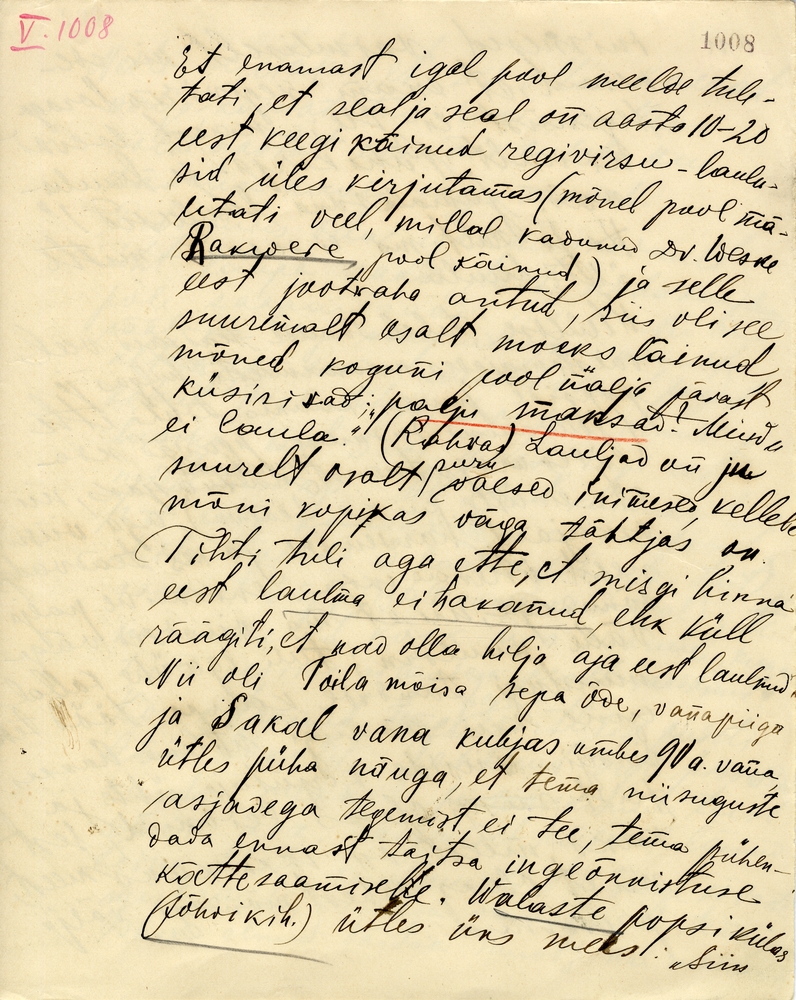 V. 1008
1008
Et enamast igal pool meelde tule-
tati, et seal ja seal on aasta 10–20
eest keegi käinud regivirsu-laulu-
sid üles kirjutamas (mõnel pool mä-
letati veel, millal kadunud Dr. Weske
Rakwere pool käinud) ja selle
eest jootraha antud, siis oli see
suuremalt osalt moeks läinud
mõned koguni pool nälja pärast
küsisivad: "palju maksad? Muidu
ei laula." (Rahva) Lauljad on ju
suurelt osalt puru vaesed inimesed, kellele
mõni kopikas väga tähtjas on.
Tihti tuli aga ette, et misgi hinna
eest laulma ei hakanud, ehk küll
räägiti, et nad olla hilja aja eest laulnud.
Nii oli Toila mõisa sepa õde, vanapiiga
ja Sakal vana kubjas umbes 90 a. vana
ütles püha näuga, et tema niisuguste
asjadega tegemist ei tee, tema pühen-
dada ennast täitsa ingeõnnistuse
kättesaamisele. Walaste popsikülas
(Jõhvi kih.) ütles üks mees: "Siin